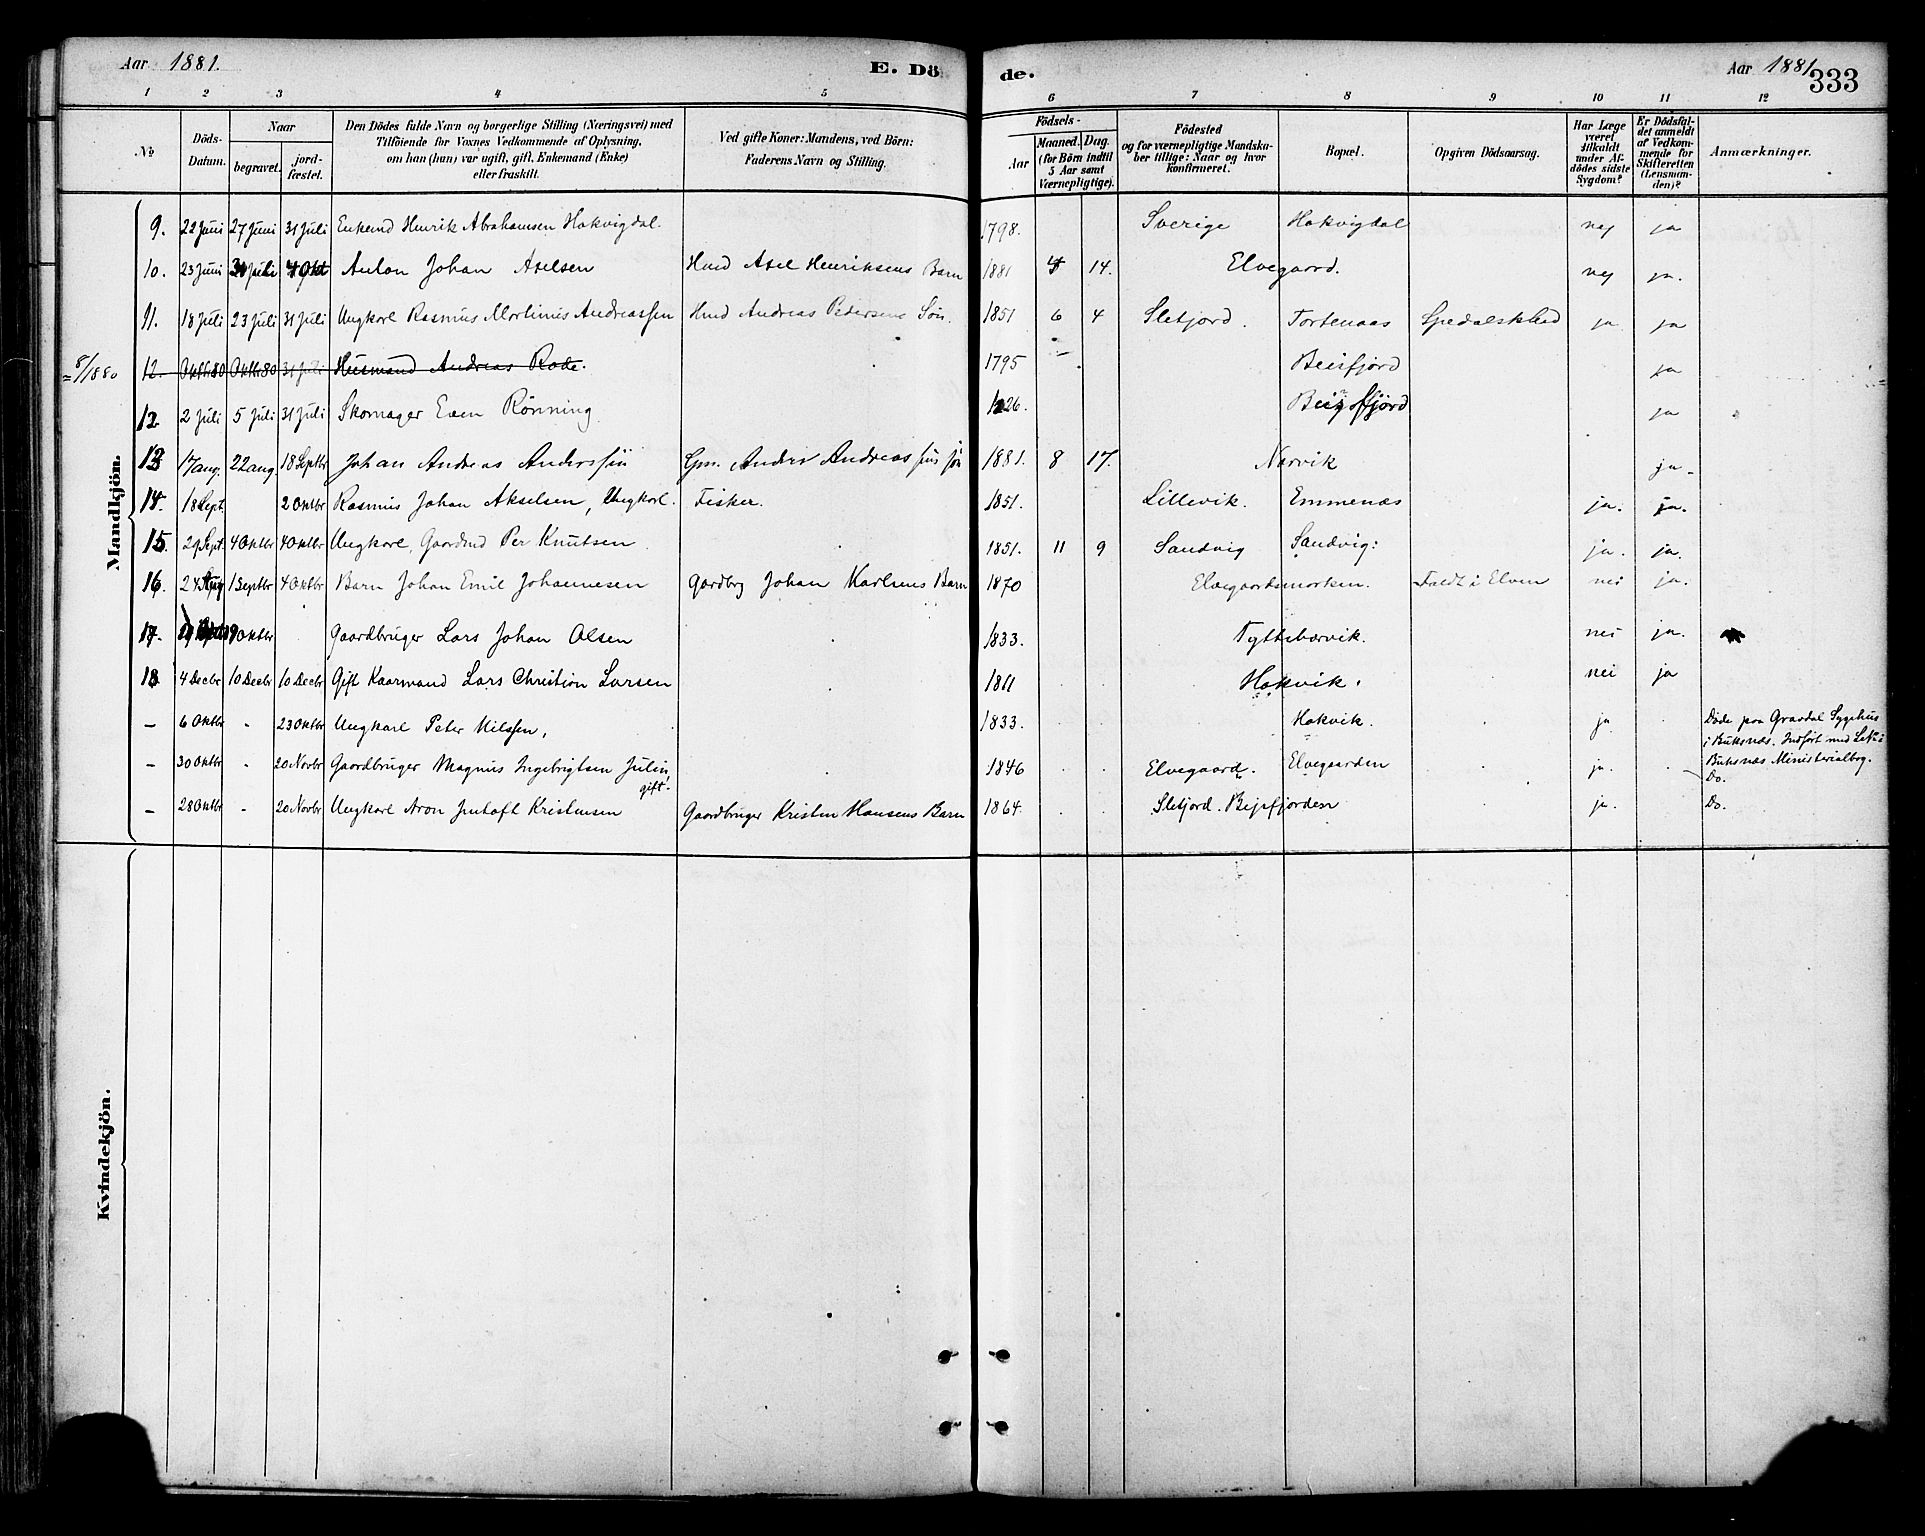 Aar 1881. E. Dö de. Aar 1881 333
1 2 3 4 5 6 7 8 9 10 11 12
No
Döds-Datum.
Naar
begravet.
jord-fæstet.
Den Dödes fulde Navn og borgerlige Stilling (Næringsvei) med
Tilföiende for Voxnes Vedkommende af Oplysning,
om han (hun) var ugift, gift, Enkemand (Enke)
eller fraskilt.
Ved gifte Koner: Mandens, ved Börn:
Faderens Navn og Stilling.
Födsels-
Aar
Maaned. Dag.
(for Börn indtil
5 Aar samt
Værnepligtige).
Födested
og for værnepligtige Mandska-
ber tillige: Naar og hvor
konfirmeret.
Bopæl.
Opgiven Dödsaarsag.
Har Læge
været
tilkaldt
under Af-
dödes sidste
Sygdom?
Er Dödsfal-
det anmeldt
af Vedkom-
mende for
Skifteretten
(Lensman-
den)?
Anmærkninger.
Mandkjön.
9. 22 Juni 27 Juni 31 Juli Enkemd Henrik Abrahamsen Hakvigdal. 1798. Sverige Hakvigdal nej ja
10. 23 Juni 31 Juli 4 Okt Anton Johan Axelsen Husmd Axel Henriksens Barn 1881 14. Elvegaard. nej ja.
11. 18 Juli 23 Juli 31 Juli Ungkarl Rasmus Martinus Andreassen Husmd Andreas Pedersens Sön. 1851 6 4 Sletjord. Tortenaas Spedalskhed ja ja
=8/1880 12. Oktbr 80 Oktbr 80 31 Juli Husmand Andreas Rode. 1795 Beisfjord ja
12 2 Juli 5 Juli 31 Juli Skomager Even Rönning 26. Beisfjord ja
13 17 aug. 22 aug. 18 Septbr Johan Andreas Anderssön Gm. Anders Andreas 1881. 8 17. Narvik ja.
14. 18 Sept. 2 Oktbr Rasmus Johan Akselsen, Ungkarl. Fisker. 1851. Lillevik. Emmenæs ja. ja.
15. 29 Sept. 4 Oktbr 4 Oktbr Ungkarl, Gaardmd Per Knutsen 1851. 11 9 Sandvig Sandvig: ja. ja.
16. 24 Aug 1 Septbr 4 Oktbr Barn Johan Emil Johannesen Gardbrg Johan Karlsens Barn 1870 Elvegaardsmarken. Faldt i Elven nei ja.
17. 9 Oktbr Gaardbruger Lars Johan Olsen 1833. Tyttebærvik. nei ja.
18 4 Decbr 10 Decbr 10 Decbr Gift Kaarmand Lars Christian Larsen 1811 Hakvik. nei ja
– 6 Oktbr - 23 Oktbr Ungkarl Peter Nilssen, 1833. Hakvik. ja Döde paa Gravdal Sygehus
i Buksnæs. Indfört med i
Buksnæs Ministerialbog.
– 30 Oktbr - 20 Novbr Gaardbruger Magnus Ingebrigtsen Julin, gift. 1846 Elvegaard. Elvegaarden ja. Do.
– 28 Oktbr - 20 Novbr Ungkarl Aron Kristensen Gaardbruger Kristen Hansens Barn 1864. Sletjord. Bejsfjorden ja. Do.
Kvindekjön.